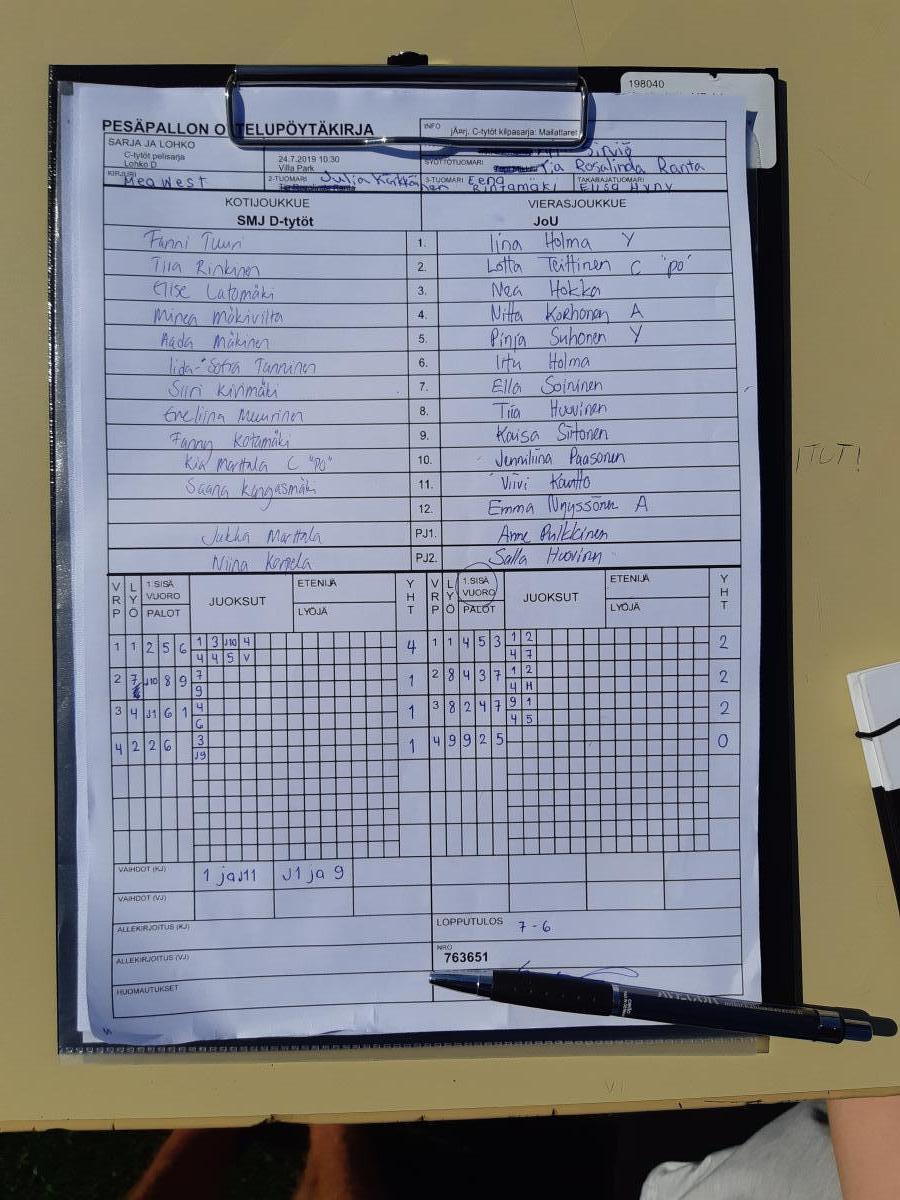 198040
PESÄPALLON O TELUPÖYTÄKIRJA
INFO jÄerj. C-tytöt kilpasarja: Mailattaret
SARJA JA LOHKO
C-tytöt pelisarja
Lohko D
24.7.2019 10.30
Villa Park
SYÖTTÖTUOMARI Tia Rosalinda Ranta
KIRJURI Mea West
2-TUOMARI Julia Kärkkäinen
3-TUOMARI Eena Rintamäki
TAKARAJATUOMARI Elisa
KOTIJOUKKUE VIERASJOUKKUE
SMJ D-tytöt JoU
Fanni Tuuri 1. Iina Holma Y
Tiia Rinkinen 2. Lotta Teittinen C "po"
Elise Latomäki 3. Nea Hokka
Minea Mäkivilta 4. Niita Korhonen A
Aada Mäkinen 5. Pinja Suhonen Y
Iida-Sofia Tanninen 6. Holma
Siiri Kivimäki 7. Ella Soininen
Eveliina Muurinen 8. Tiia Huovinen
Fanny Kotamäki 9. Kaisa Siitonen
Kia Marttala C "po" 10. Jenniliina Paasonen
Saana Kangasmäki 11. Viivi Kautto
12. Emma Nyyssönen A
Jukka Marttala PJ1. Anne Pulkkinen
Niina Korpela PJ2. Salla Huovinen
VRP LYÖ 1.SISÄ VUORO PALOT JUOKSUT ETENIJÄ LYÖJÄ YHT VRP LYÖ 1.SISÄ VUORO PALOT JUOKSUT ETENIJÄ LYÖJÄ YHT
1 1 2 5 6 1 3 J10 4 4 1 1 4 5 3 1 2 2
4 4 5 V 4 7
2 7 J10 8 9 7 1 2 8 4 3 7 1 2 2
9 4 H
3 4 J1 6 1 4 1 3 8 2 4 7 9 1 2
6 4 5
4 2 2 6 3 1 4 9 9 2 5 0
J9
VAIHDOT (KJ) 1 ja J11 J1 ja 9
VAIHDOT (VJ)
ALLEKIRJOITUS (KJ) LOPPUTULOS 7-6
ALLEKIRJOITUS (VJ) NRO
763651
HUOMAUTUKSET